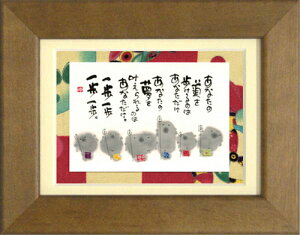 あなたの
道を
歩けるのは
あなただけ
あなたの
夢を
叶えられるのは
あなただけ。
一歩一歩。
一歩一歩。